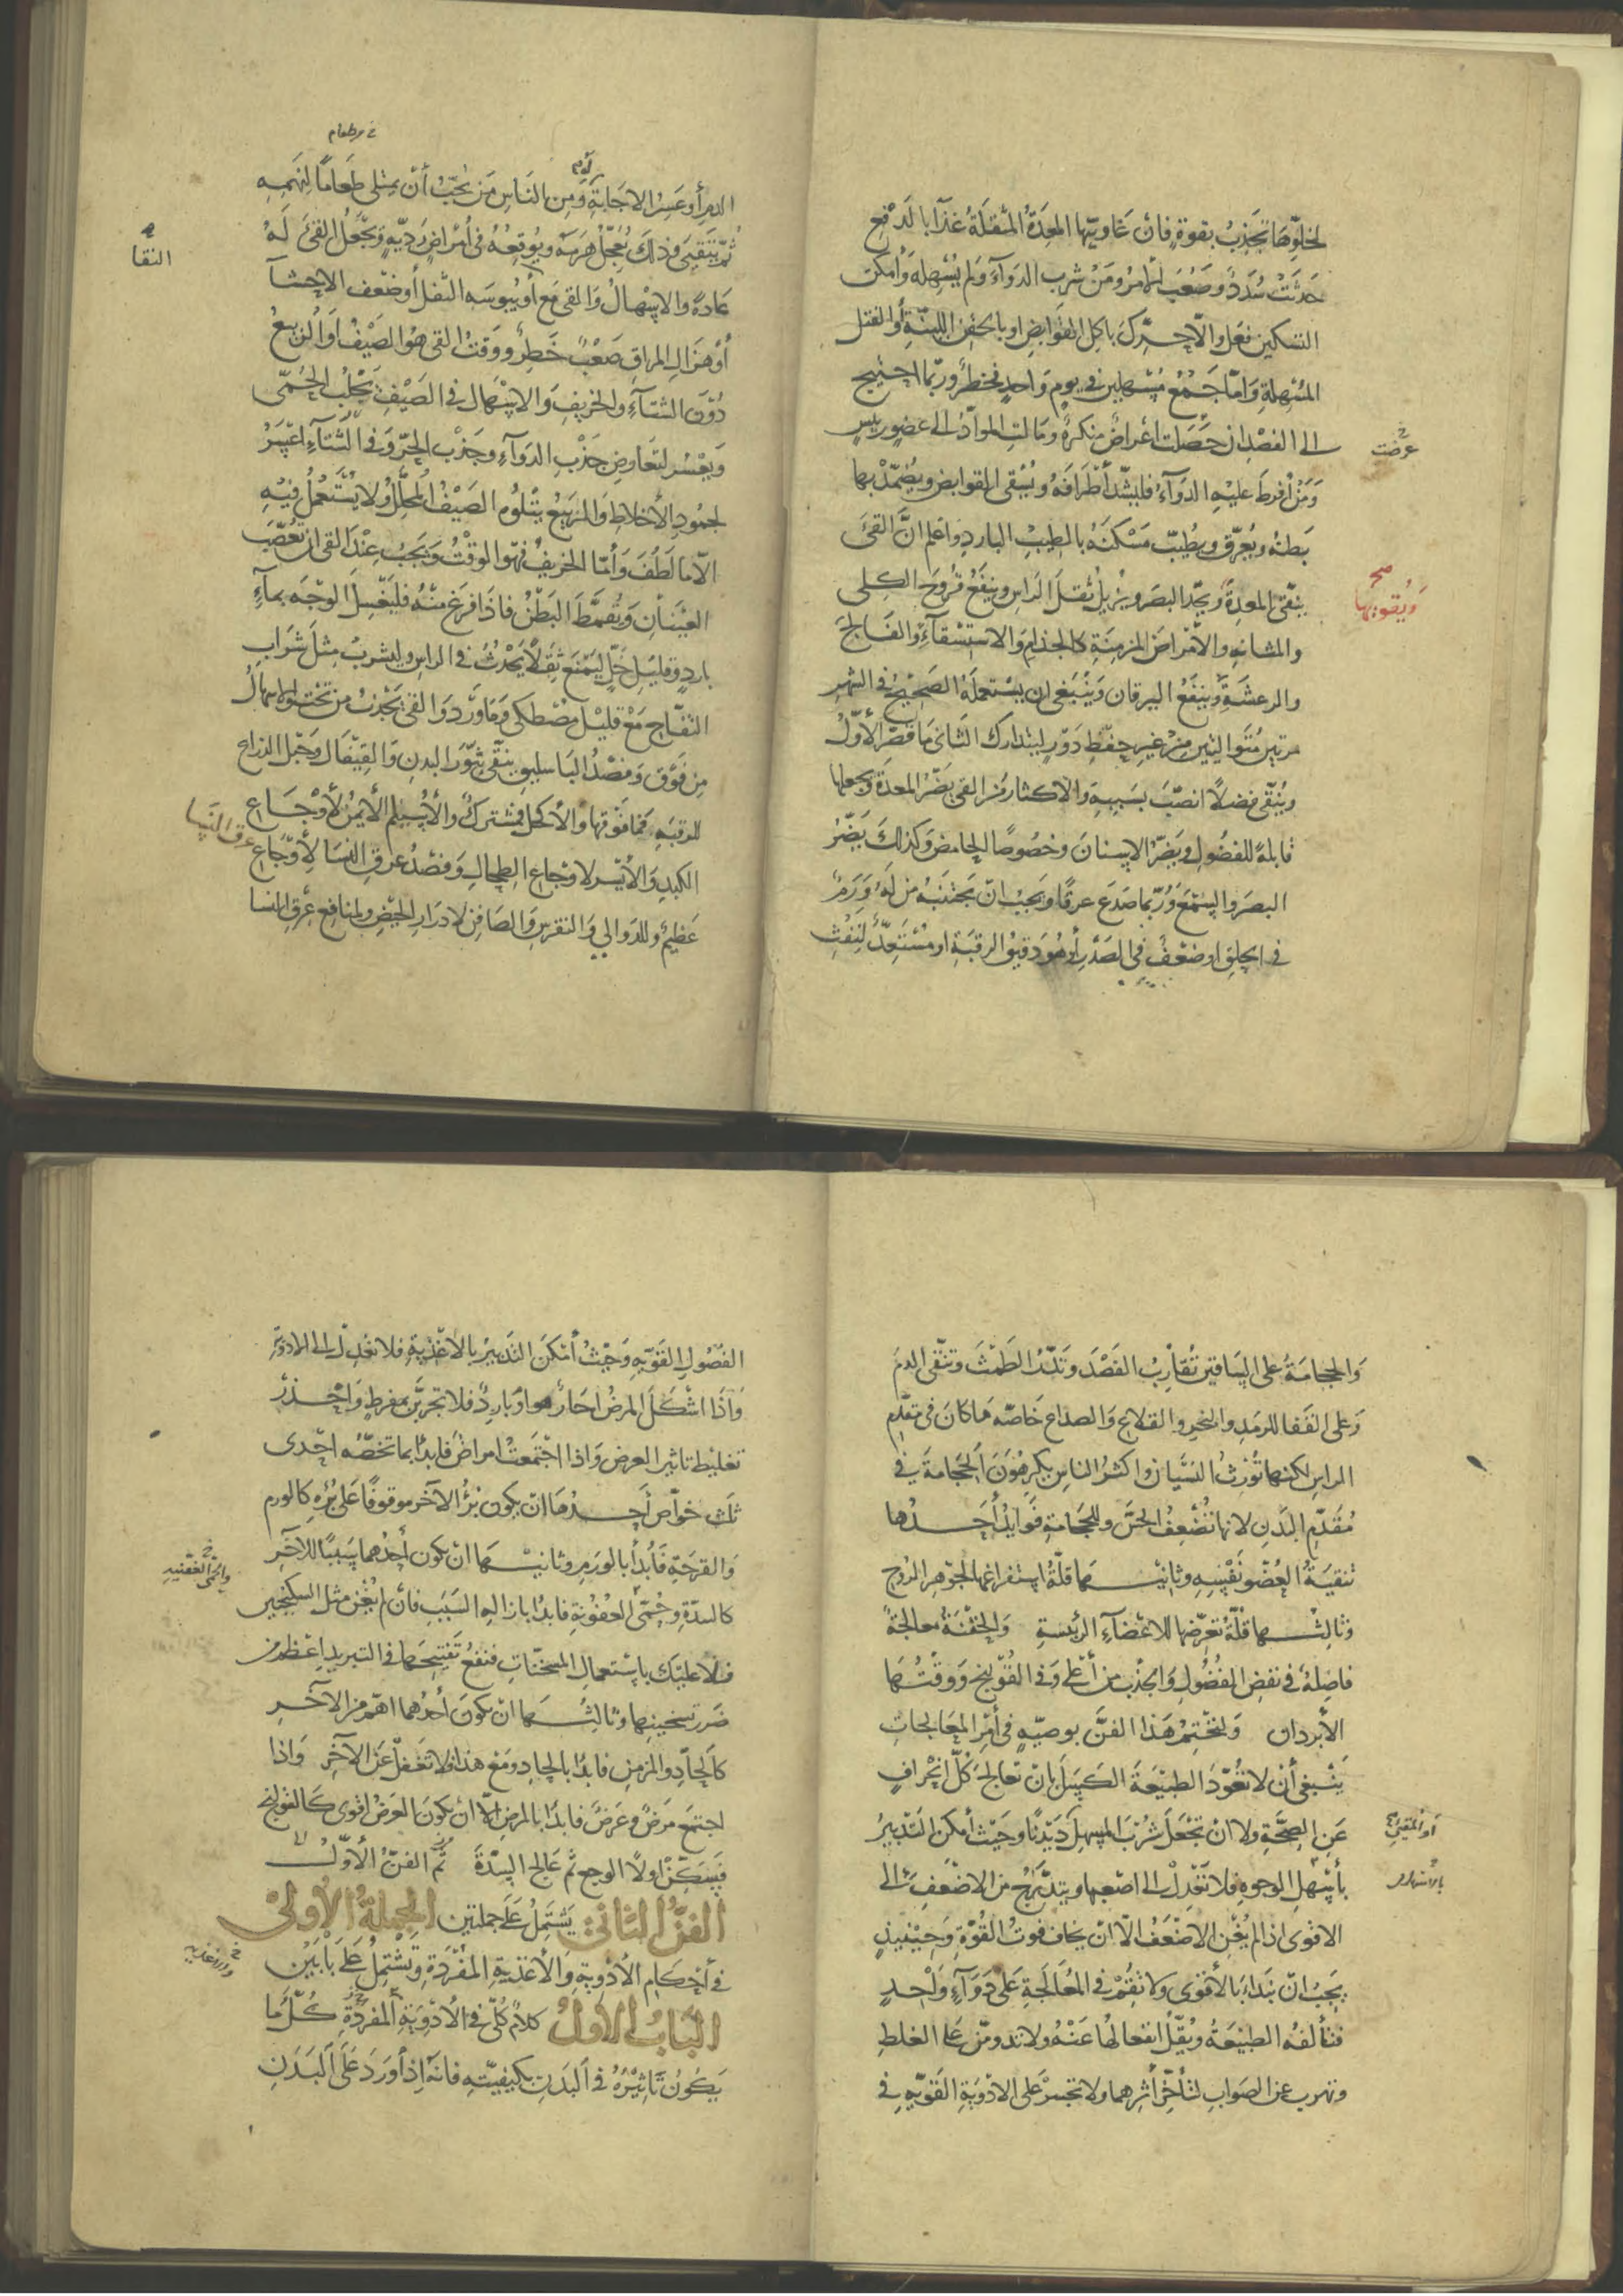 لخلوّها تجذب بقوة فان عاوتها المعدة المثقلة غذا بالدفع
حدثت سدد وصعب الأمر ومن شرب الدوآء ولم يسهله وأمكن
التسكين فعل والّا حرّك باكل القوابض او بالحقن اللينة أو الفتل
المسهلة وامّا جمع مسهلين في يوم واحد فخطر وربّما احتيج
الى الفصد ان حصلت أعراض منكرة ومالت الموادّ الى عضو ريس
عرضت
ومن أفرط عليه الدوآء فليشدّ أطرافه ويسقى القوابض ويضمّد بها
بطنه ويعرّق ويطيّب مسكنه بالطيب البارد واعلم انّ القئ
ينقّى المعدة ويحدّ البصر ويزيل ثقل الراس وينفع قروح الكلى
ويقويها صح
والمثانه والأمراض المزمنة كالجذام والاستسقآء والفالج
والرعشة وينفع اليرقان وينبغى ان يستعمله الصحيح في الشهر
مرتين متواليتين من غير حفظ دور ليتدارك الثاني ما قصّر الأوّل
وينقّى فضلاً انصبّ بسببه والاكثار من القى يضرّ المعدة ويجعلها
قابلة للفضول ويضرّ الاسنان وخصوصًا الحامض وكذلك يضرّ
البصر والسّمع وربّما صدع عرقا ويجب انّ يجتنبه من له ورم
في الحلق او ضعف في الصدر أو هو دقيق الرقبة او مستعدّ لنفث
الدم أو عسر الاجابة ومن الناس من يحبّ أن يمتلى طعامًا لنهمه
ثمّ يتقيى وذلك يعجّل هرمه ويوقعه في أمراض رديّه ويجعل القئ له
عادة والاسهال والقى مع أو يبوسه الثفل أو ضعف الاحشآ
النقا
أو هزال المراق صعب خطر ووقت القى هو الصيف أو الربيع
دون الشتآء والخريف والاسهال في الصيف يجلب الحمّى
ويعسر لتعاوض جذب الدوآء وجذب الحرّ وفي الشتآء اعسر
لجمود الأخلاط والربيع يتلوه الصيف المحلّل ولا يستعمل فيه
الّا ما لطف وأمّا الخريف فهو الوقت ويجب عند القى ان تعصّب
العينان وتقمّط البطن فاذا فرغ منه فليغسل الوجه بمآء
بارد وقليل خلّ ليمنع ثقلاً يحدث في الراس وليشرب مثل شراب
التفّاح مع قليل مصطكى وماورد والقى يجذب من تحت والاسهال
من فوق وفصد الباسليق ينقّى تنور البدن والقيفال وحبل الذراع
للرقبه فما فوقها والأكحل مشترك والأسيلم الأيمن لأوجاع
الكبد والأيسر لاوجاع الطحال وفصد عرق النسا لأوجاع
عرق النسا
عظيم وللدوالي والنقرس والصافن لادرار الحيض ولمنافع عرق النسا
والحجامة على الساقين تقارب الفصد وتدرّ الطمث وتنقّى الدم
وعلى القفا للرمد والبخر والقلاع والصداع خاصّه ما كان في مقدّم
الراس لكنها تورث النسيان واكثر الناس يكرهون الحجامة في
مقدّم البدن لانها تضعف الحسّ وللحجامة فوايد أحدها
تنقية العضو نفسه وثانيها قلّة استفراغها لجوهر الروح
وثالثها قلّة تعرّضها للاعضآء الرئيسة والحقنة معالجة
فاضلة في نفض الفضول والجذب من أعلى وفي القولنج ووقتها
الأبردان ولنختم هذا الفنّ بوصيّه في أمر المعالجات
ينبغى أن لا تعوّد الطبيعة الكسل بان تعالج كلّ انحراف
عن الصحّة ولا ان تجعل شرب المسهل ديدنًا وحيث أمكن التدبير
او المقيئ
بأسهل الوجوه فلا تعدل الى اصعبها ويتدرّج من الاضعف الى
الاقوى اذا لم يغن الاضعف الّا انّ يخاف فوت القوّة وحينئذ
يجب انّ نبداء بالأقوى ولا تقم في المعالجة على دوآء واحد
فتألفه الطبيعة ويقلّ انفعالها عنه ولا تدومنّ على الغلط
وتهرب عن الصواب لتأخّر أثرهما ولا تجسر على الادوية القويّه في
الفصول القويّه وحيث أمكن التدبير بالأغذية فلا تعدل الى الادوية
واذا اشكل المرض احارّ هو او بارد فلا تجربنّ بمفرط واحذر
تغليط تاثير العرض واذا اجتمعت امراض فابدأ بما تخصّه احدى
ثلث خواصّ احدها انّ يكون برؤ الآخر موقوفًا على برئه كالورم
والقرحة فابدأ بالورم وثانيها انّ يكون أحدهما سببًا للآخر
كالسدّة وحمّى العفونة فابدأ بازاله السبب فأن لم يغن مثل السكنجبين
والحمى العفنيه
فلا عليك باستعمال المسخّنات فنفع تفتيحها في التبريد اعظم من
ضرر تسخينها وثالثها انّ يكون أحدهما اهمّ من الآخر
كالحادّ والمزمن فابدأ بالحاد ومع هذا فلا تغفل عن الآخر واذا
اجتمع مرض وعرض فابدأ بالمرض الّا انّ يكون العرض اقوى كالقولنج
فتسكّن اولًا الوجع ثمّ عالج السدّة تمّ الفنّ الأوّل
الفنّ الثاني يشتمل على جملتين الجملة الأولى
في أحكام الأدوية والأغذية المفردة وتشتمل على بابين
الباب الأول كلام كلّى في الأدوية المفردة كلّ ما
يكون تاثيره في البدن بكيفيّته فانه اذا ورد على البدن